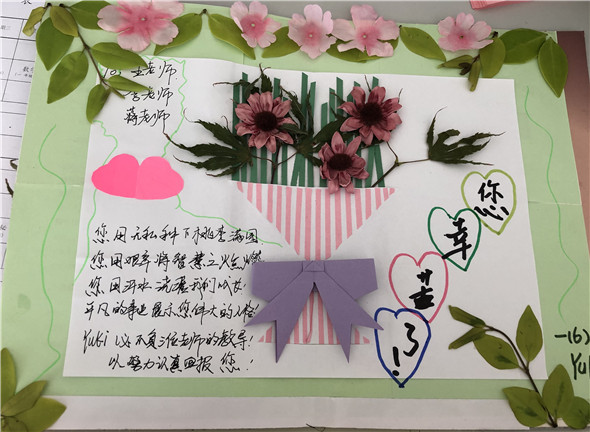 To: 王老师
李老师
蒋老师
您用无私种下桃李满园
您用艰辛将智慧之火点燃
您用汗水浇灌我们成长
平凡的事迹展示您伟大的人格
Yuki 必不负三位老师的教导!
以努力认真回报您!
您
辛
苦
了!